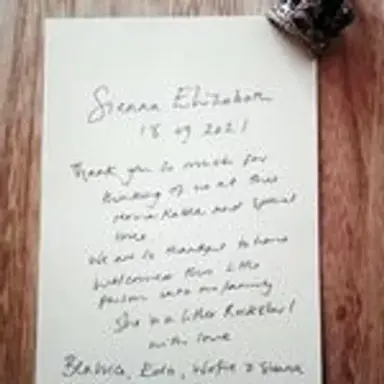 Sienna Elizabeth
18 09 2021
Thank you so much for
thinking of us at this
and special
time
We are so thankful to have
welcomed this little
person into our family
She is a little Rockstar!
with love